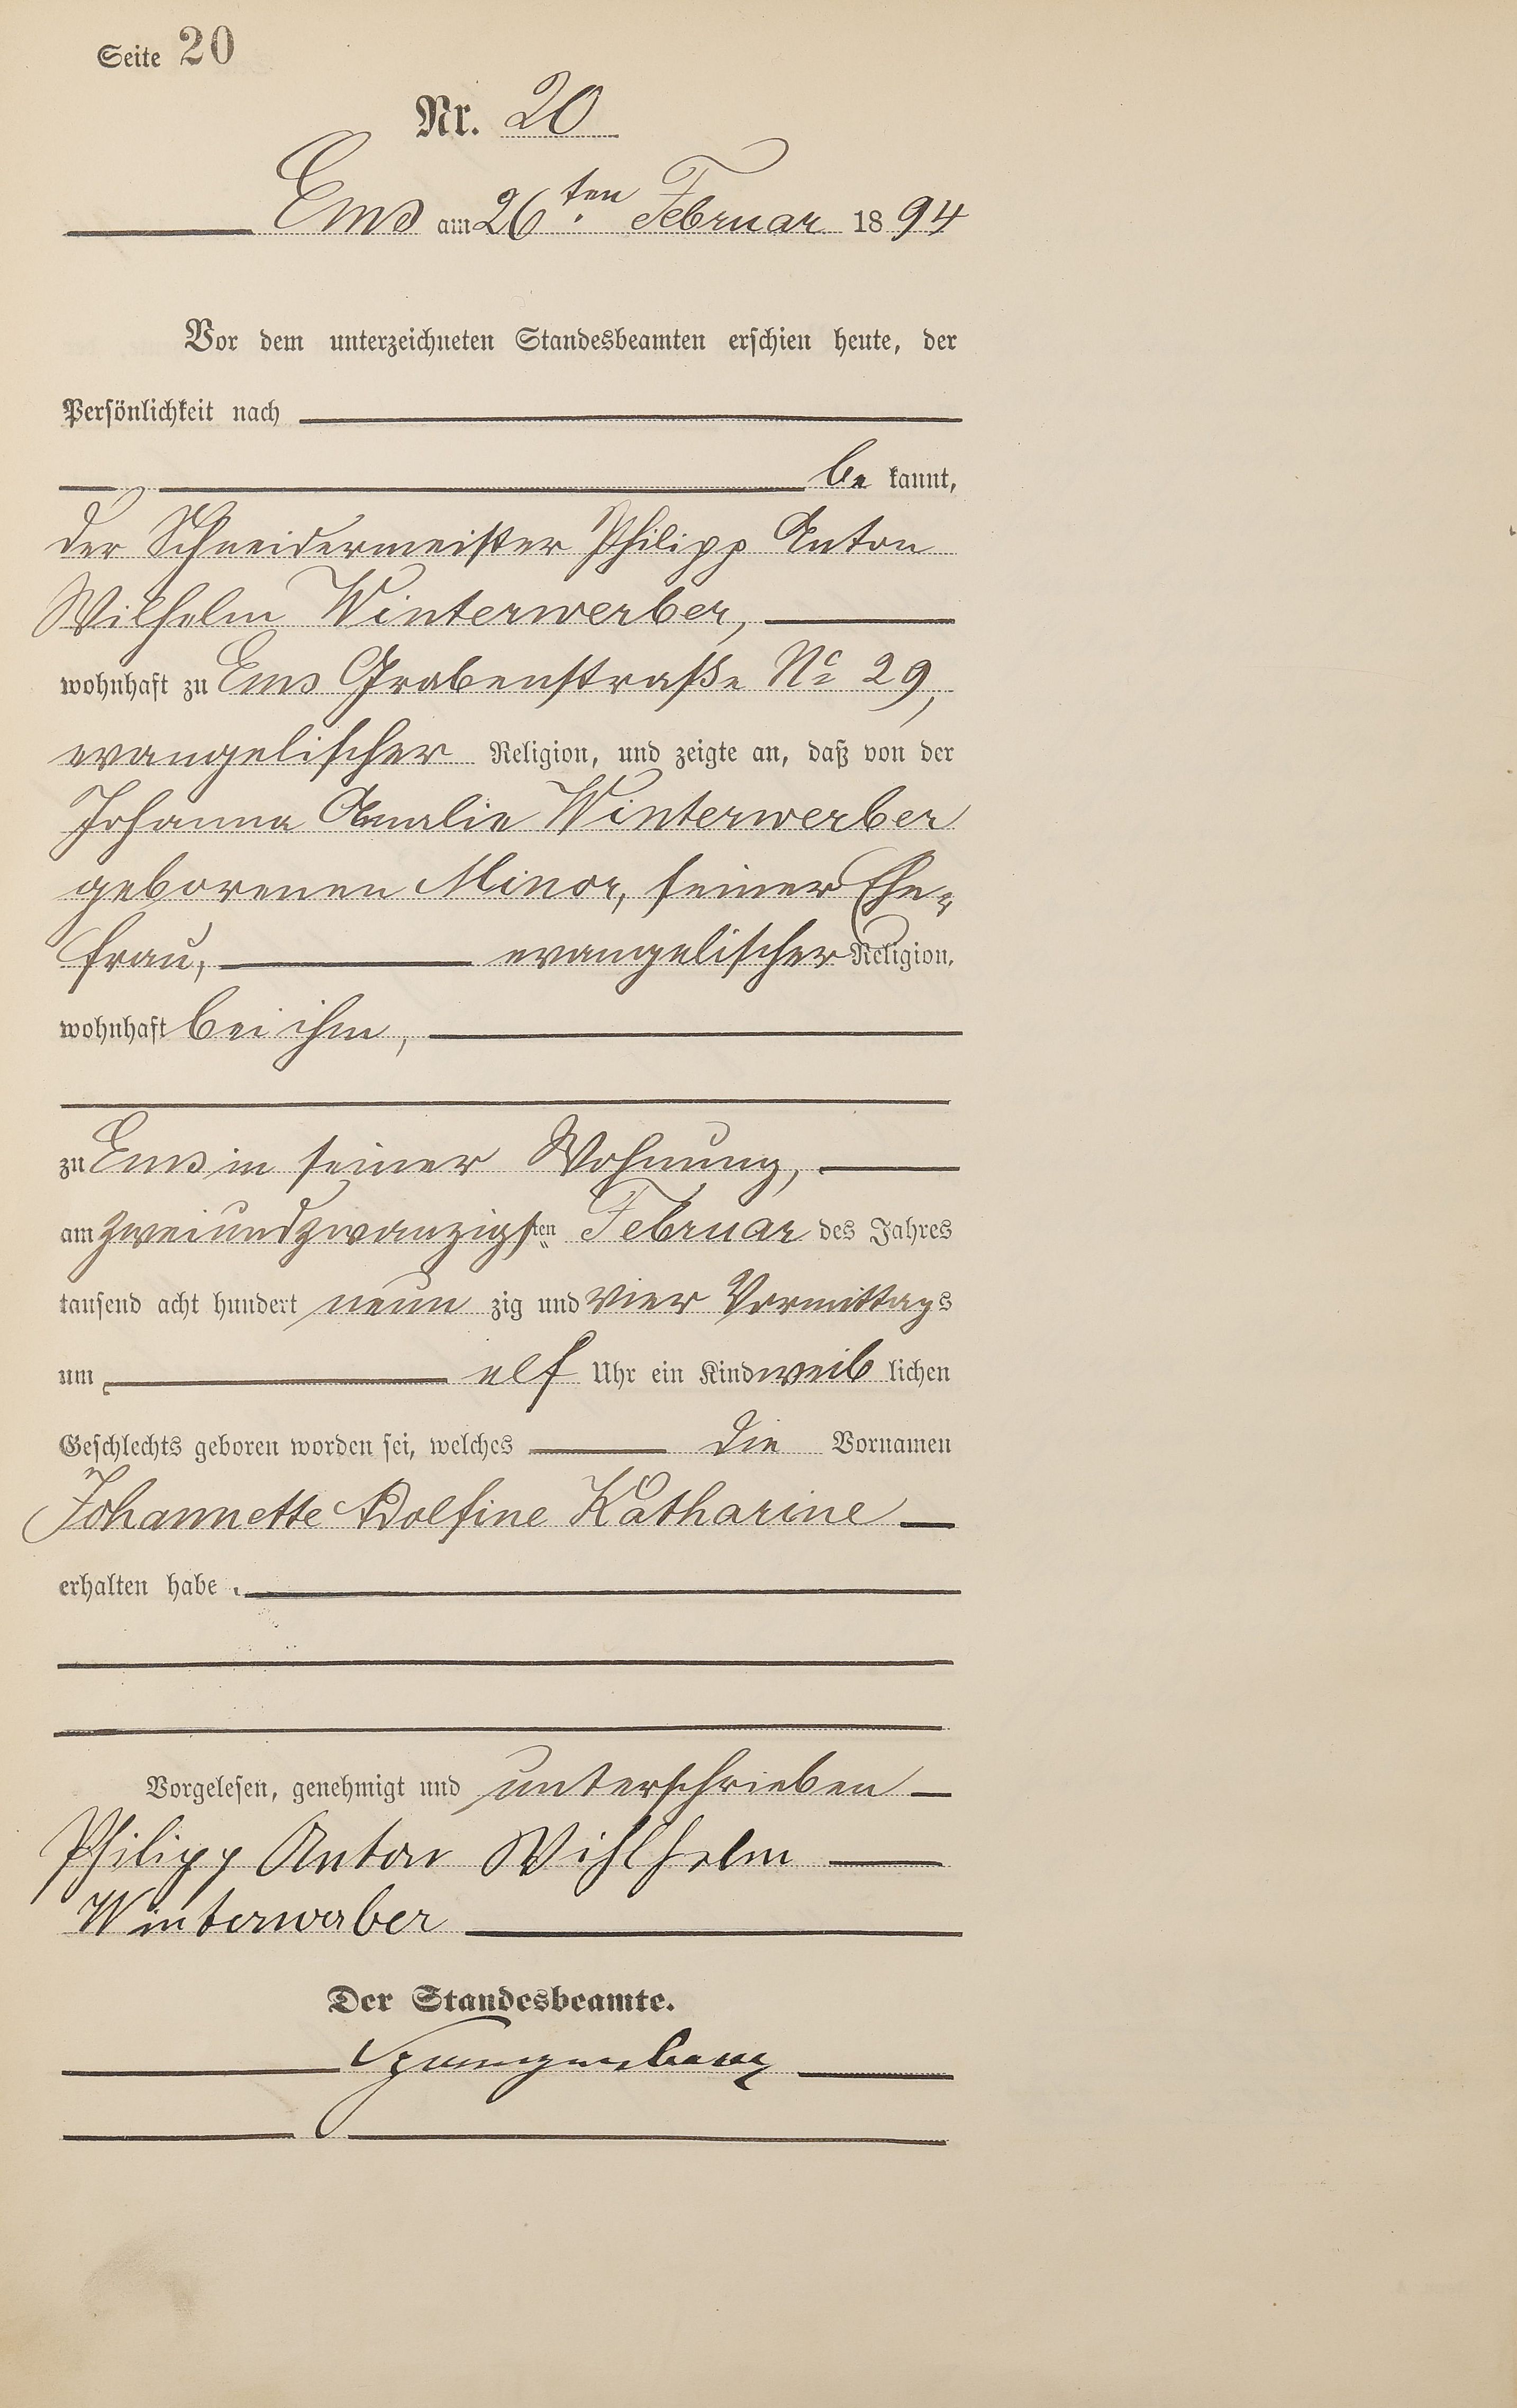 Seite 20
Nr. 20
Ems am 26ten Februar 1894
Vor dem unterzeichneten Standesbeamten erschien heute, der
Persönlichkeit nach
be kannt,
der Schneidermeister Philipp Anton
Wilhelm Winterwerber,
wohnhaft zu Ems Grabenstraße No 29,
evangelischer Religion, und zeigte an, daß von der
Johanna Amalie Winterwerber
geborenen Minor, seiner Ehe-
frau, evangelischer Religion,
wohnhaft bei ihm,
zu Ems in seiner Wohnung,
am zweiundzwanzigsten Februar des Jahres
tausend acht hundert neun zig und vier Vormittags
um elf Uhr ein Kind weib lichen
Geschlechts geboren worden sei, welches die Vornamen
Johannette Adolfine Katharine
erhalten habe.
Vorgelesen, genehmigt und unterschrieben
Philipp Anton Wihlhelm
Winterwerber
Der Standesbeamte.
Spangenberg